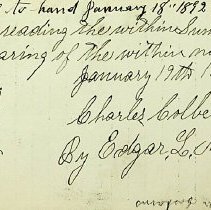 to hand January 18" 1892
reading the within Sum
aring of the within n
January 19th 1
Charles Colbe
By Edgar L.